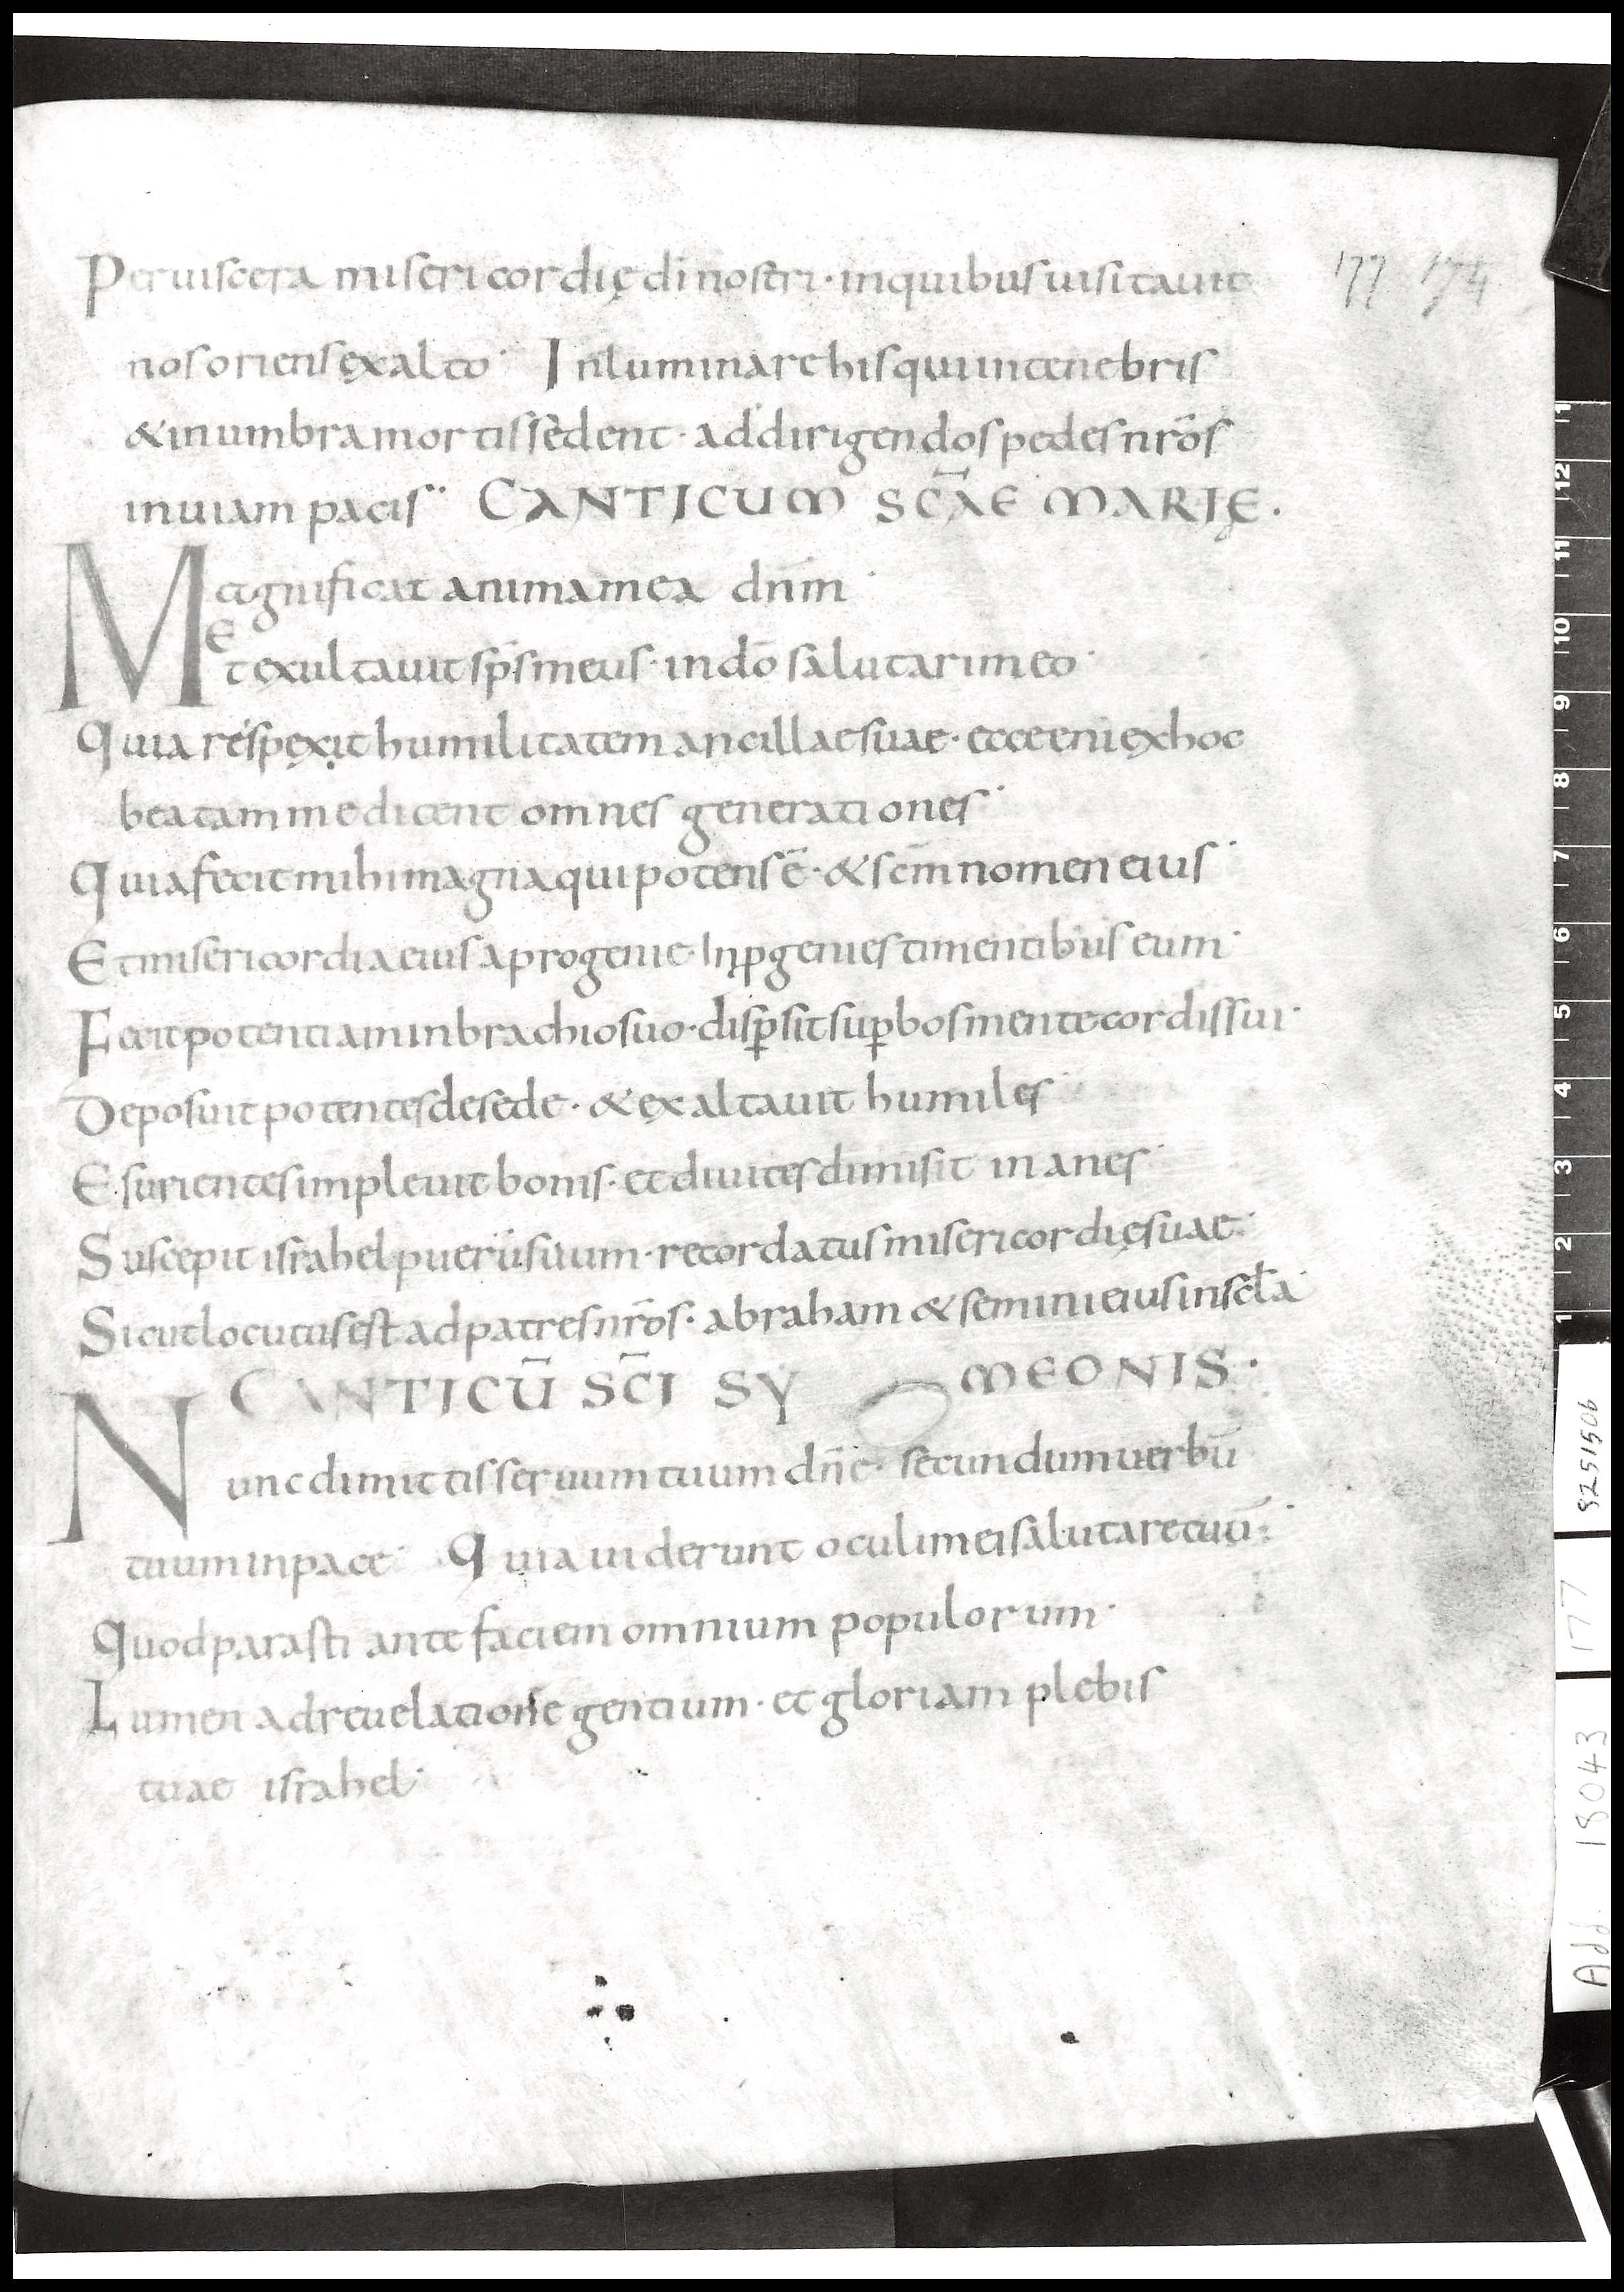 Per uiscera misericordię di nostri · inquibus uisitauit 177 174
nos oriens exalto · Inluminare his qui intenebris
& inumbra mortis sedent · ad dirigendos pedes nr̄os
inuiam pacis · CANTICUM SC̄AE MARIĘ ·
Magnificat anima mea dn̄m ·
Et exultauit sp̄s meus · in dō salutari meo ·
Quia respexit humilitatem ancillae suae · ecce eni exhoc
beatam me dicent omnes generationes ·
Quia fecit mihi magna qui potens ē · & sc̄m nomen eius ·
Et misericordia eius aprogenie · Inꝓgenies timentibus eum ·
Fecit potentiam inbrachio suo · disꝑsit suꝑbos mente cordis sui ·
Deposuit potentes desede · & exaltauit humiles
Esurientes impleuit bonis · et diuites dimisit inanes ·
Suscepit israhel puerū suum · recordatus misericordię suae ·
Sicut locutus est ad patres nr̄os · abraham & semini eius insc̄la
CANTICŪ SC̄I SYMEONIS ·
Nunc dimittis seruum tuum dn̄e · secundum uerbū
tuum inpace · Quia uiderunt oculi mei salutare tuū ·
Quod parasti ante faciem omnium populorum ·
Lumen ad reuelatione gentium · et gloriam plebis
tuae israhel ·
11
12
11
10
9
8
7
6
5
4
3
2
1
8251506
177
Add. 18043